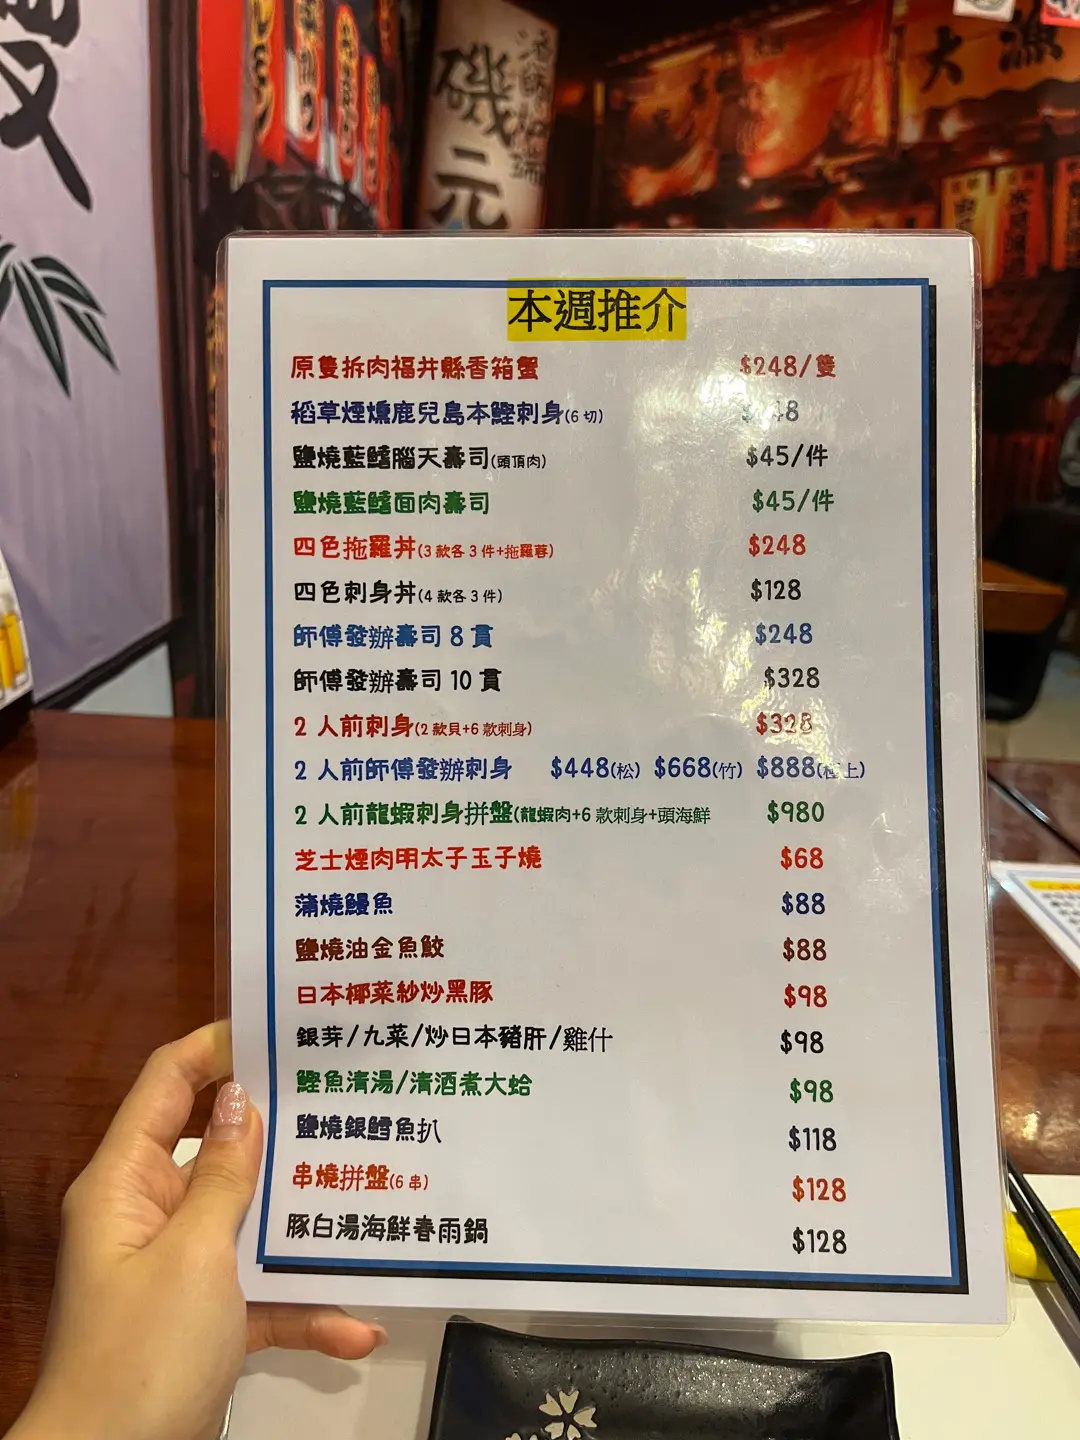 磯元
大漁
本週推介
原隻拆肉福井縣香箱蟹 $248/隻
稻草煙燻鹿兒島本鰹刺身(6 切)
鹽燒藍鰭腦天壽司(頭頂肉) $45/件
鹽燒藍鰭面肉壽司 $45/件
四色拖羅丼(3 款各 3 件+拖羅蓉) $248
四色刺身丼(4 款各 3 件) $128
師傅發辦壽司 8 貫 $248
師傅發辦壽司 10 貫 $328
2 人前刺身(2 款貝+6 款刺身) $328
2 人前師傅發辦刺身 $448(松) $668(竹) $888(極上)
2 人前龍蝦刺身拼盤(龍蝦肉+6 款刺身+頭海鮮 $980
芝士煙肉明太子玉子燒 $68
蒲燒鰻魚 $88
鹽燒油金魚鮫 $88
日本椰菜紗炒黑豚 $98
銀芽/九菜/炒日本豬肝/雞什 $98
鰹魚清湯/清酒煮大蛤 $98
鹽燒銀鱈魚扒 $118
串燒拼盤(6 串) $128
豚白湯海鮮春雨鍋 $128